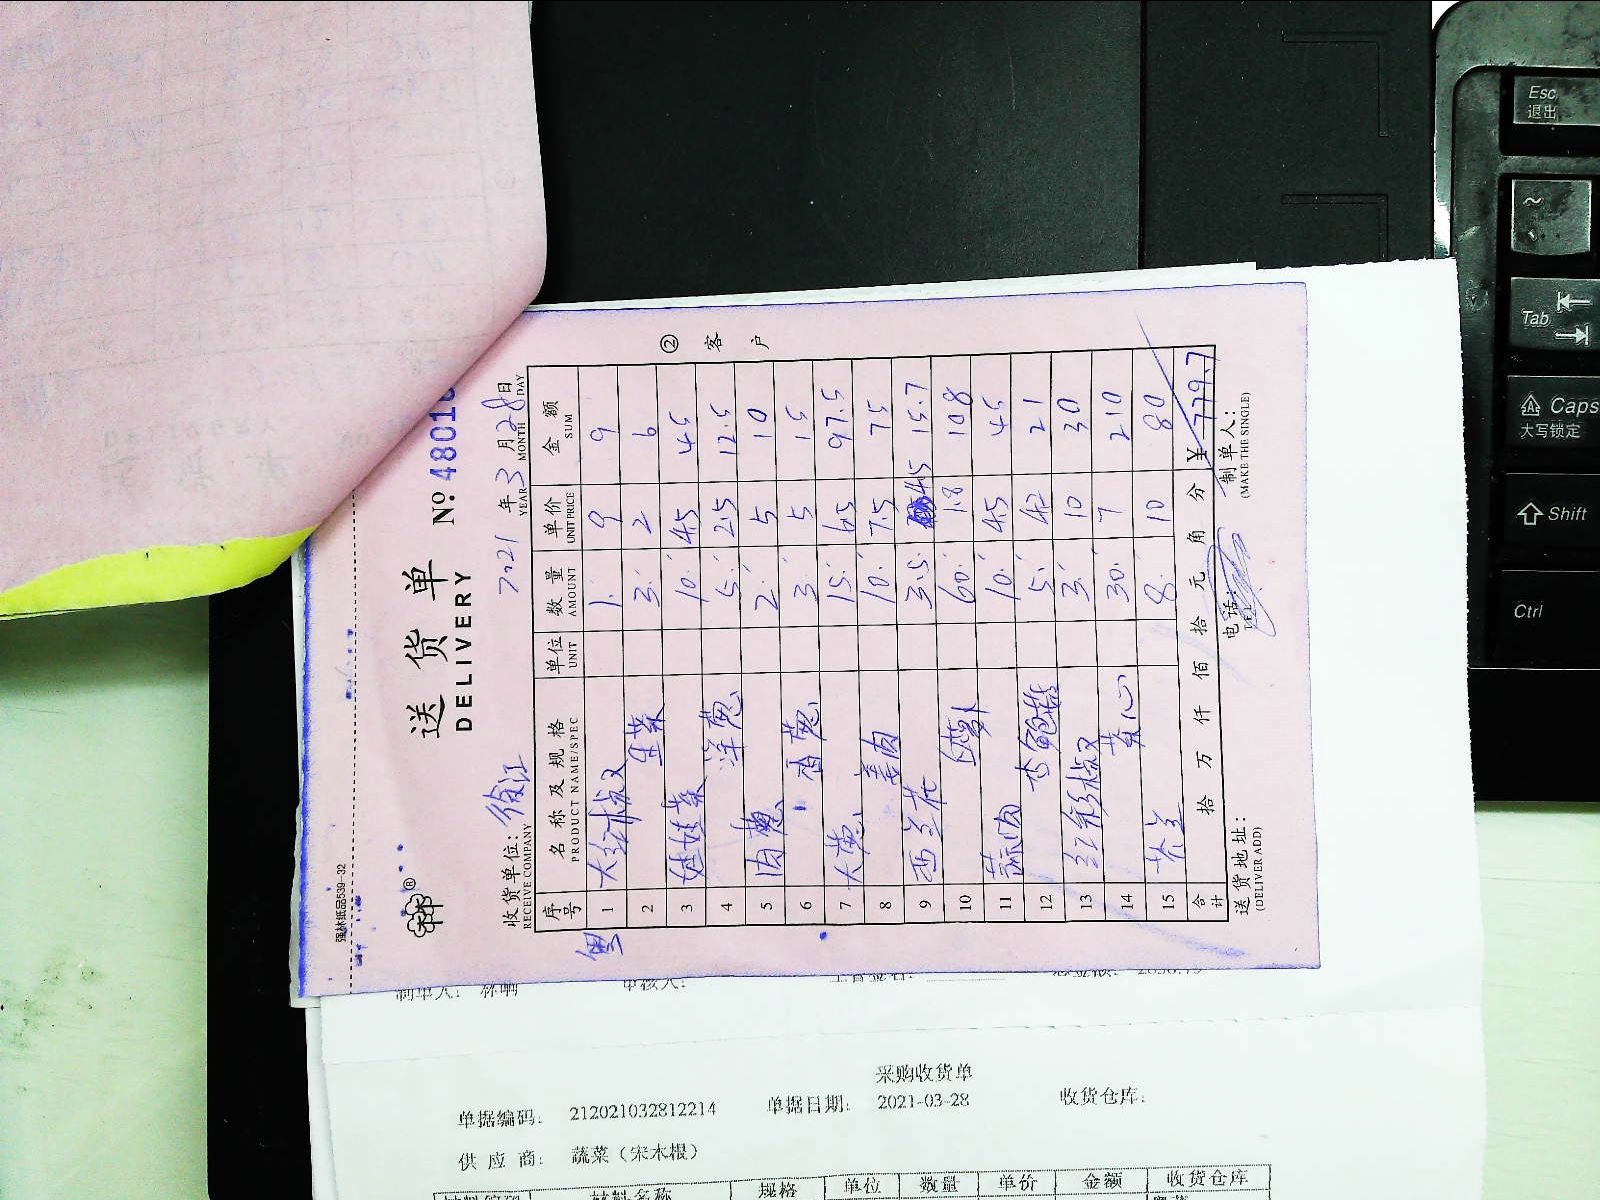 强林纸品539-32
送货单
DELIVERY
№ 48010
收货单位：徐江
RECEIVE COMPANY
2021 年 3 月 28 日
YEAR MONTH DAY
② 客户
序号 名称及规格 单位 数量 单价 金额
PRODUCT NAME/SPEC UNIT AMOUNT UNIT PRICE SUM
1 大红椒 1. 9 9
2 韭菜 3. 2 6
3 娃娃菜 10. 4.5 45
4 洋葱 5. 2.5 12.5
5 肉葱 2. 5 10
6 香葱 3. 5 15
7 大葱 15. 6.5 97.5
8 姜肉 10. 7.5 75
9 西兰花 3.5 4.5 15.7
10 白萝卜 60. 1.8 108
11 10. 4.5 45
12 杏鲍菇 5. 4.2 21
13 红彩椒 3. 10 30
14 黄心 30. 7 210
15 芥兰 8. 10 80
合计 拾 万 仟 佰 拾 元 角 分 ¥ 779.7
送货地址： 电话： 制单人：
(DELIVER ADD) TEL (MAKE THE SINGLE)
制单人： 审核人：
采购收货单
单据编码： 212021032812214 单据日期： 2021-03-28 收货仓库：
供应商： 蔬菜（宋木根）
材料编码 材料名称 规格 单位 数量 单价 金额 收货仓库
Esc
退出
~
Tab
Caps
大写锁定
Shift
Ctrl